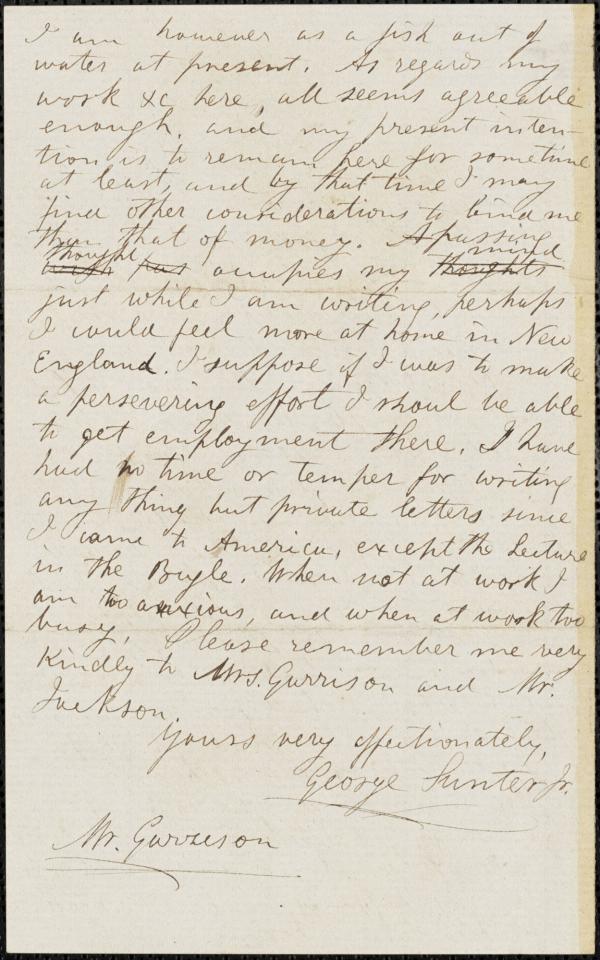 I am however as a fish out of
water at present. As regards my
work &c here, all seems agreeable
enough, and my present inten-
tion is to remain here for sometime
at least, and by that time I may
find other considerations to bind me
than that of money. A passing
thought mind
has occupies my thoughts
just while I am writing, perhaps
I would feel more at home in New
England. I suppose if I was to make
a persevering effort I shoul be able
to get employment there. I have
had no time or temper for writing
any thing but private letters since
I came to America, except the Lecture
in the Bugle. When not at work I
am too anxious, and when at work too
busy. Please remember me very
kindly to Mrs. Garrison and Mr.
Jackson.
Yours very affectionately,
George Sunter Jr.
Mr. Garrison